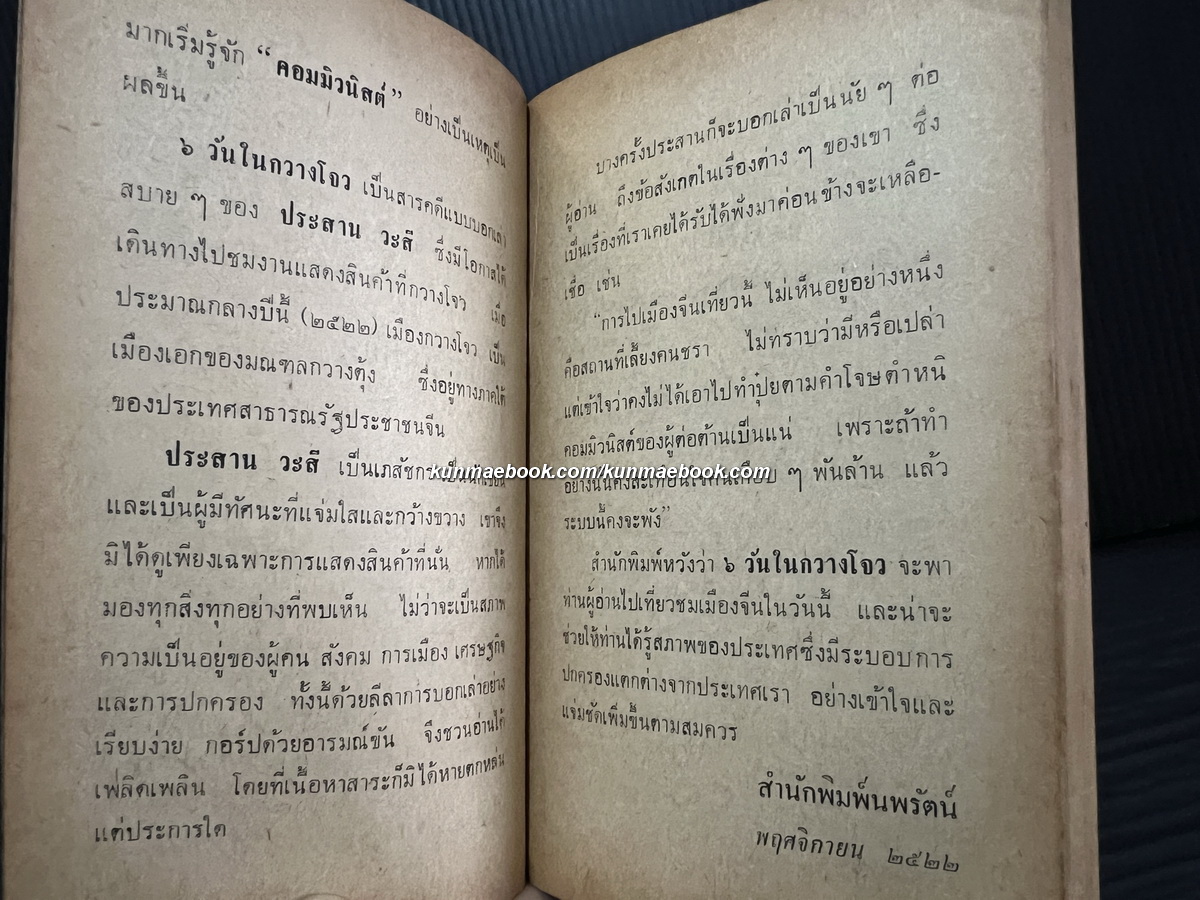 มากเริ่มรู้จัก “คอมมิวนิสต์” อย่างเป็นเหตุเป็น
ผลขึ้น
๖ วันในกวางโจว เป็นสารคดีแบบบอกเล่า
สบาย ๆ ของ ประสาน วะสี ซึ่งมีโอกาสได้
เดินทางไปชมงานแสดงสินค้าที่กวางโจว เมื่อ
ประมาณกลางปีนี้ (๒๕๒๒) เมืองกวางโจว เป็น
เมืองเอกของมณฑลกวางตุ้ง ซึ่งอยู่ทางภาคใต้
ของประเทศสาธารณรัฐประชาชนจีน
ประสาน วะสี เป็นเภสัชกร
และเป็นผู้มีทัศนะที่แจ่มใสและกว้างขวาง เขาจึง
มิได้ดูเพียงเฉพาะการแสดงสินค้าที่นั่น หากได้
มองทุกสิ่งทุกอย่างที่พบเห็น ไม่ว่าจะเป็นสภาพ
ความเป็นอยู่ของผู้คน สังคม การเมือง เศรษฐกิจ
และการปกครอง ทั้งนี้ด้วยลีลาการบอกเล่าอย่าง
เรียบง่าย กอร์ปด้วยอารมณ์ขัน จึงชวนอ่านได้
เพลิดเพลิน โดยที่เนื้อหาสาระก็มิได้หายตกหล่น
แต่ประการใด
บางครั้งประสานก็จะบอกเล่าเป็นนัย ๆ ต่อ
ผู้อ่าน ถึงข้อสังเกตในเรื่องต่าง ๆ ของเขา ซึ่ง
เป็นเรื่องที่เราเคยได้รับได้ฟังมาค่อนข้างจะเหลือ-
เชื่อ เช่น
“การไปเมืองจีนเที่ยวนี้ ไม่เห็นอยู่อย่างหนึ่ง
คือสถานที่เลี้ยงคนชรา ไม่ทราบว่ามีหรือเปล่า
แต่เข้าใจว่าคงไม่ได้เอาไปทำปุ๋ยตามคำโจษตำหนิ
คอมมิวนิสต์ของผู้ต่อต้านเป็นแน่ เพราะถ้าทำ
ๆ พันล้าน แล้ว
ระบบนี้คงจะพัง”
สำนักพิมพ์หวังว่า ๖ วันในกวางโจว จะพา
ท่านผู้อ่านไปเที่ยวชมเมืองจีนในวันนี้ และน่าจะ
ช่วยให้ท่านได้รู้สภาพของประเทศซึ่งมีระบอบการ
ปกครองแตกต่างจากประเทศเรา อย่างเข้าใจและ
แจ่มชัดเพิ่มขึ้นตามสมควร
สำนักพิมพ์นพรัตน์
พฤศจิกายน ๒๕๒๒
kunmaebook.com/kunmaebook.com